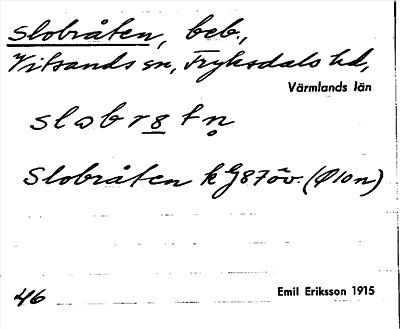 Slobråten, beb.,
Vitsands sn, Fryksdals hd,
Värmlands län
slɷbr8tn̥
Slobråten k G87öv. (Ø10n)
46
Emil Eriksson 1915